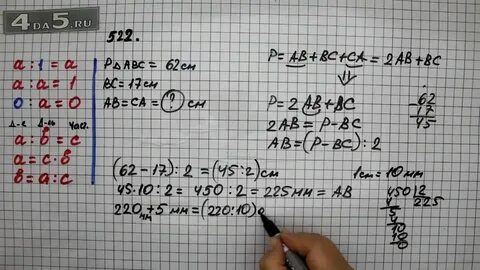 4da5.RU
522.
a : 1 = a
a : a = 1
0 : a = 0
Д-е Д-ль Част.
a : b = c
a = c · b
b = a : c
P△ABC = 62 см
BC = 17 см
AB = CA = ? см
P = AB + BC + CA = 2AB + BC
⇓
P = 2 AB + BC
2AB = P - BC
AB = (P - BC) : 2
62
- 17
45
(62 - 17) : 2 = (45 : 2) см
45 · 10 : 2 = 450 : 2 = 225 мм = AB
220 мм + 5 мм = (220 : 10) с
1 см = 10 мм
450 | 2
4 225
5
4
10
10
0